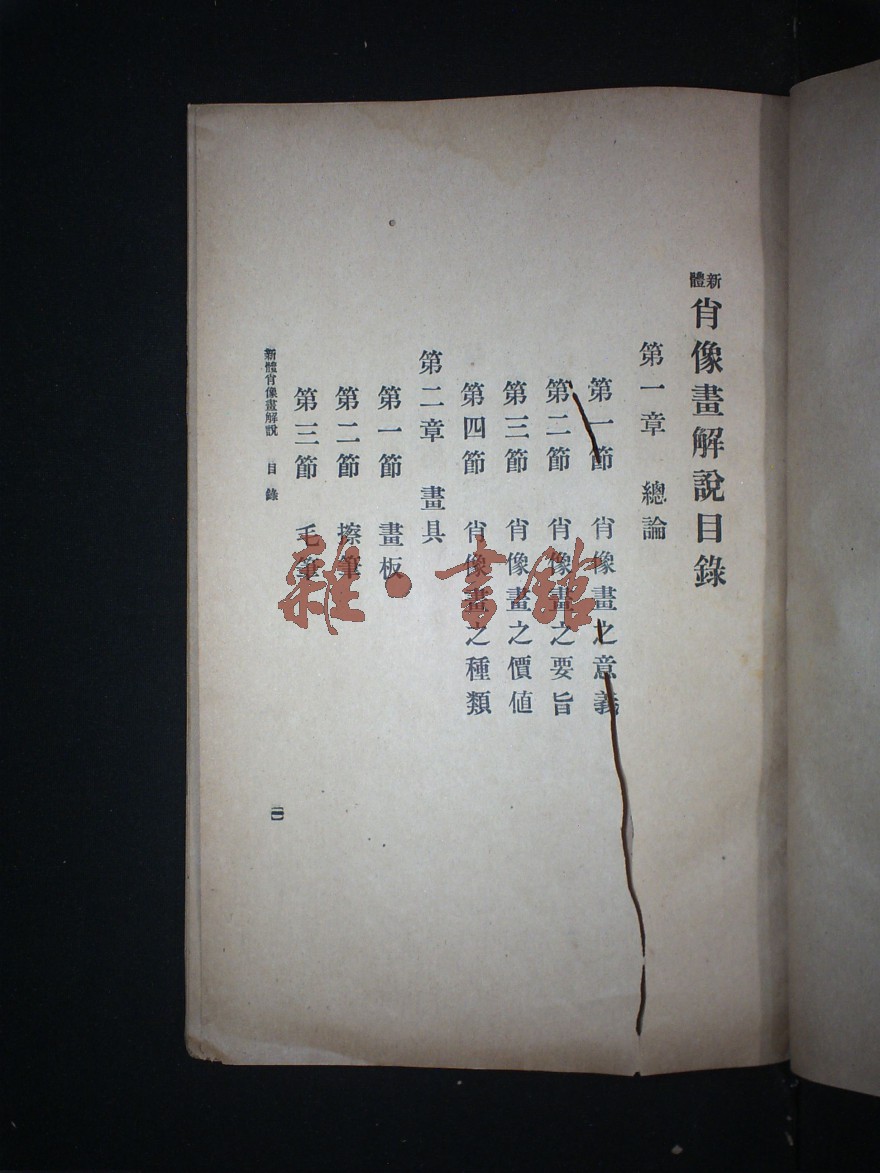 新體 肖像畫解說目錄
第一章 總論
第一節 肖像畫之意義
第二節 肖像畫之要旨
第三節 肖像畫之價値
第四節 肖像畫之種類
第二章 畫具
第一節 畫板
第二節 擦筆
第三節 毛筆
新體肖像畫解說 目錄
雜·書館